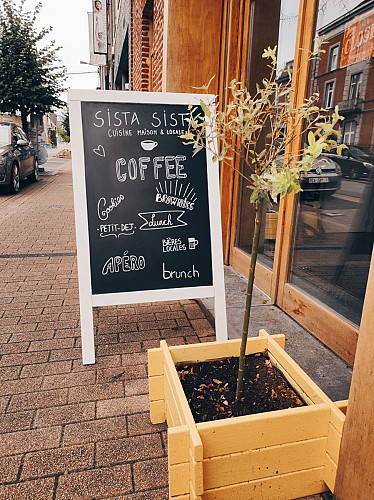 SISTA SISTA
CUISINE MAISON & LOCALE
COFFEE
Cookies
BROWNIES
PETIT-DEJ
LUNCH
APÉRO
BIÈRES
LOCALES
brunch